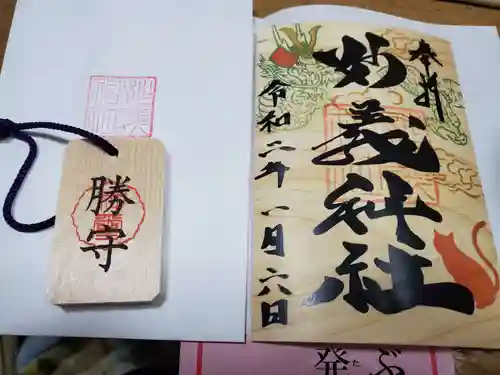 奉拝
妙義神社
令和二年一月六日
勝守
ぶ
発
た